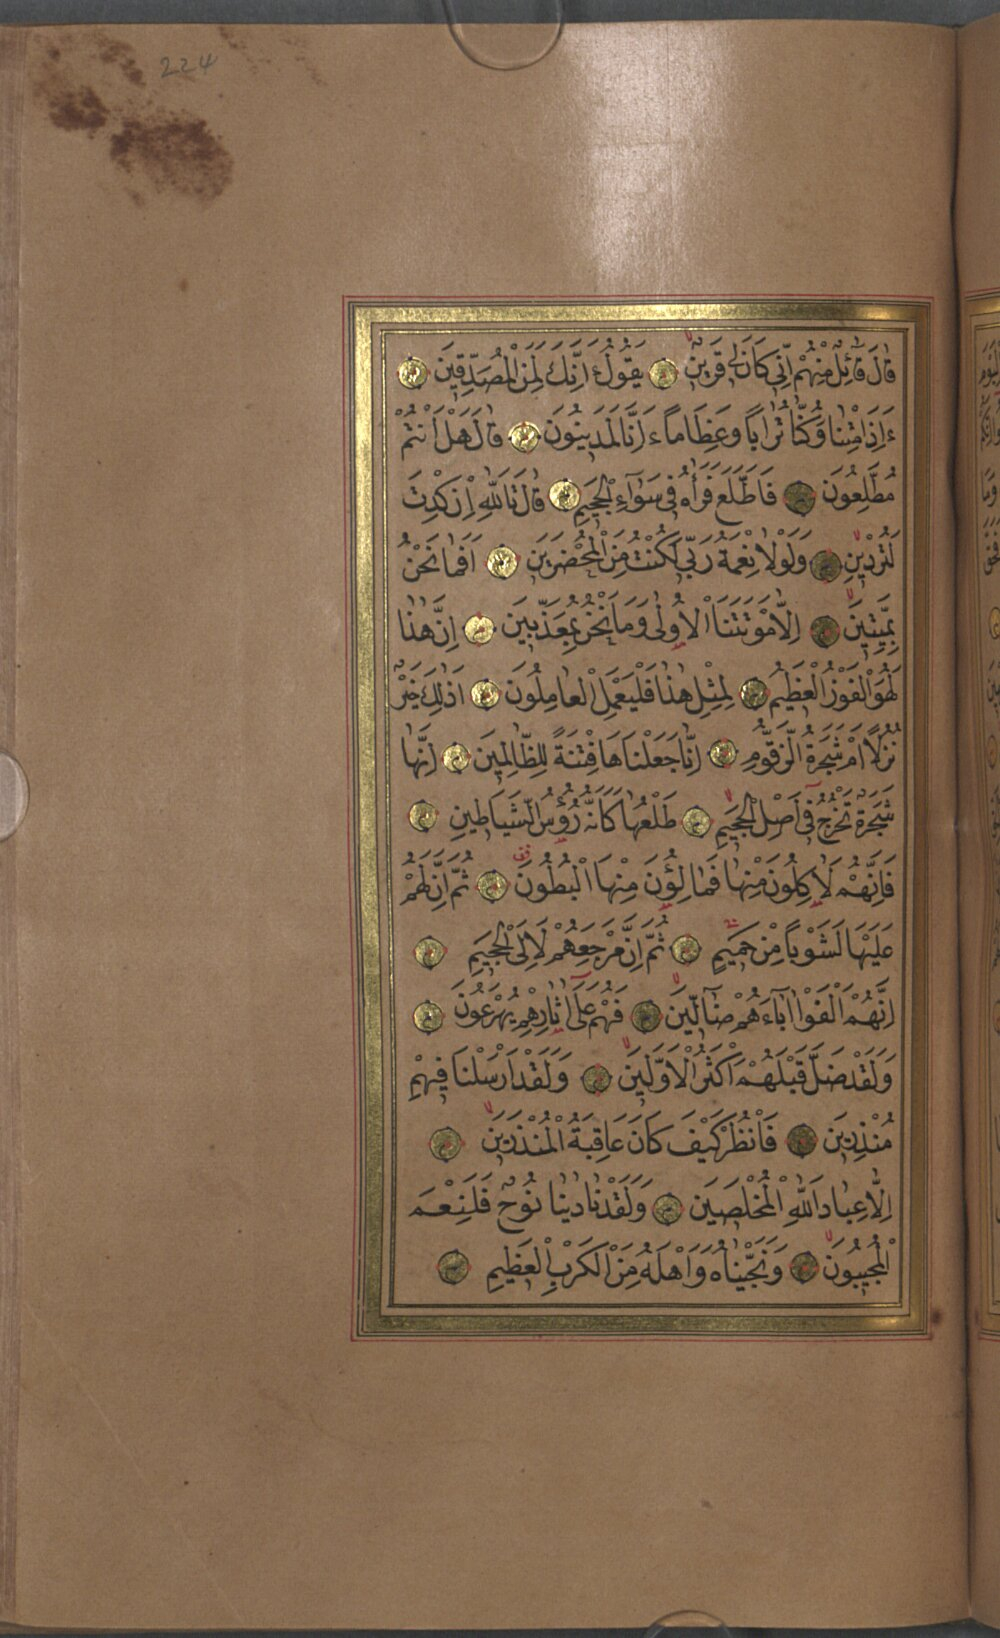 224
قَالَ قَٓائِلٌ مِنْهُمْ اِنّٖى كَانَ لٖى قَرٖينٌ يَقُولُ ءَاِنَّكَ لَمِنَ الْمُصَدِّقٖينَ
ءَاِذَا مِتْنَا وَكُنَّا تُرَابًا وَعِظَامًا ءَاِنَّا لَمَدٖينُونَ قَالَ هَلْ اَنْتُمْ
مُطَّلِعُونَ فَاطَّلَعَ فَرَاٰهُ فٖى سَوَٓاءِ الْجَحٖيمِ قَالَ تَاللّٰهِ اِنْ كِدْتَ
لَتُرْدٖينِ وَلَوْلَا نِعْمَةُ رَبّٖى لَكُنْتُ مِنَ الْمُحْضَرٖينَ اَفَمَا نَحْنُ
بِمَيِّتٖينَ اِلَّا مَوْتَتَنَا الْاُولٰى وَمَا نَحْنُ بِمُعَذَّبٖينَ اِنَّ هٰذَا
لَهُوَ الْفَوْزُ الْعَظٖيمُ لِمِثْلِ هٰذَا فَلْيَعْمَلِ الْعَامِلُونَ اَذٰلِكَ خَيْرٌ
نُزُلًا اَمْ شَجَرَةُ الزَّقُّومِ اِنَّا جَعَلْنَاهَا فِتْنَةً لِلظَّالِمٖينَ اِنَّهَا
شَجَرَةٌ تَخْرُجُ فٖٓى اَصْلِ الْجَحٖيمِ طَلْعُهَا كَاَنَّهُ رُؤُسُ الشَّيَاطٖينِ
فَاِنَّهُمْ لَاٰكِلُونَ مِنْهَا فَمَالِؤُنَ مِنْهَا الْبُطُونَ ثُمَّ اِنَّ لَهُمْ
عَلَيْهَا لَشَوْبًا مِنْ حَمٖيمٍ ثُمَّ اِنَّ مَرْجِعَهُمْ لَاِلَى الْجَحٖيمِ
اِنَّهُمْ اَلْفَوْا اٰبَٓاءَهُمْ ضَٓالّٖينَ فَهُمْ عَلٰٓى اٰثَارِهِمْ يُهْرَعُونَ
وَلَقَدْ ضَلَّ قَبْلَهُمْ اَكْثَرُ الْاَوَّلٖينَ وَلَقَدْ اَرْسَلْنَا فٖيهِمْ
مُنْذِرٖينَ فَانْظُرْ كَيْفَ كَانَ عَاقِبَةُ الْمُنْذَرٖينَ
اِلَّا عِبَادَ اللّٰهِ الْمُخْلَصٖينَ وَلَقَدْ نَادٰينَا نُوحٌ فَلَنِعْمَ
الْمُجٖيبُونَ وَنَجَّيْنَاهُ وَاَهْلَهُ مِنَ الْكَرْبِ الْعَظٖيمِ